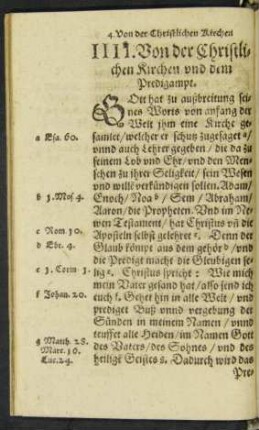 4. Von der Christlichen Kirchen
IIII. Von der Christli-
chen Kirchen vnd dem
Predigampt.
GOtt hat zu außbreitung sei-
nes Worts von anfang der
Welt jhm eine Kirche ge-
a Esa. 60. samlet/ welcher er schutz zugesaget a/
vnnd auch Lehrer gegeben/ die da zu
seinem Lob vnd Ehr/ vnd den Men-
schen zu jhrer Seligkeit/ sein Wesen
vnd will verkündigen sollen. Adam/
b 1. Mos. 4. Enoch/ Noa b/ Sem/ Abraham/
Aaron/ die Propheten. Vnd im Ne-
wen Testament/ hat Christus mit die
c Rom. 10. Aposteln selbst gelehret c. Denn der
d Ebr. 4. Glaub kömpt aus dem gehör d/ vnd
die Predigt macht die Gleubigen se-
e 1. Corin 1. lig e. Christus spricht: Wie mich
mein Vater gesand hat/ also send ich
f Johan. 20. euch f. Gehet hin in alle Welt/ vnd
prediget Buß vnnd vergebung der
Sünden in meinem Namen/ vnnd
teuffet alle Heiden/ im Namen Gott
g Matth. 28. des Vaters/ des Sohnes/ vnd des
Marc. 16. heiligē Geistes g. Dadurch wird das
Luc. 24.
Pre-